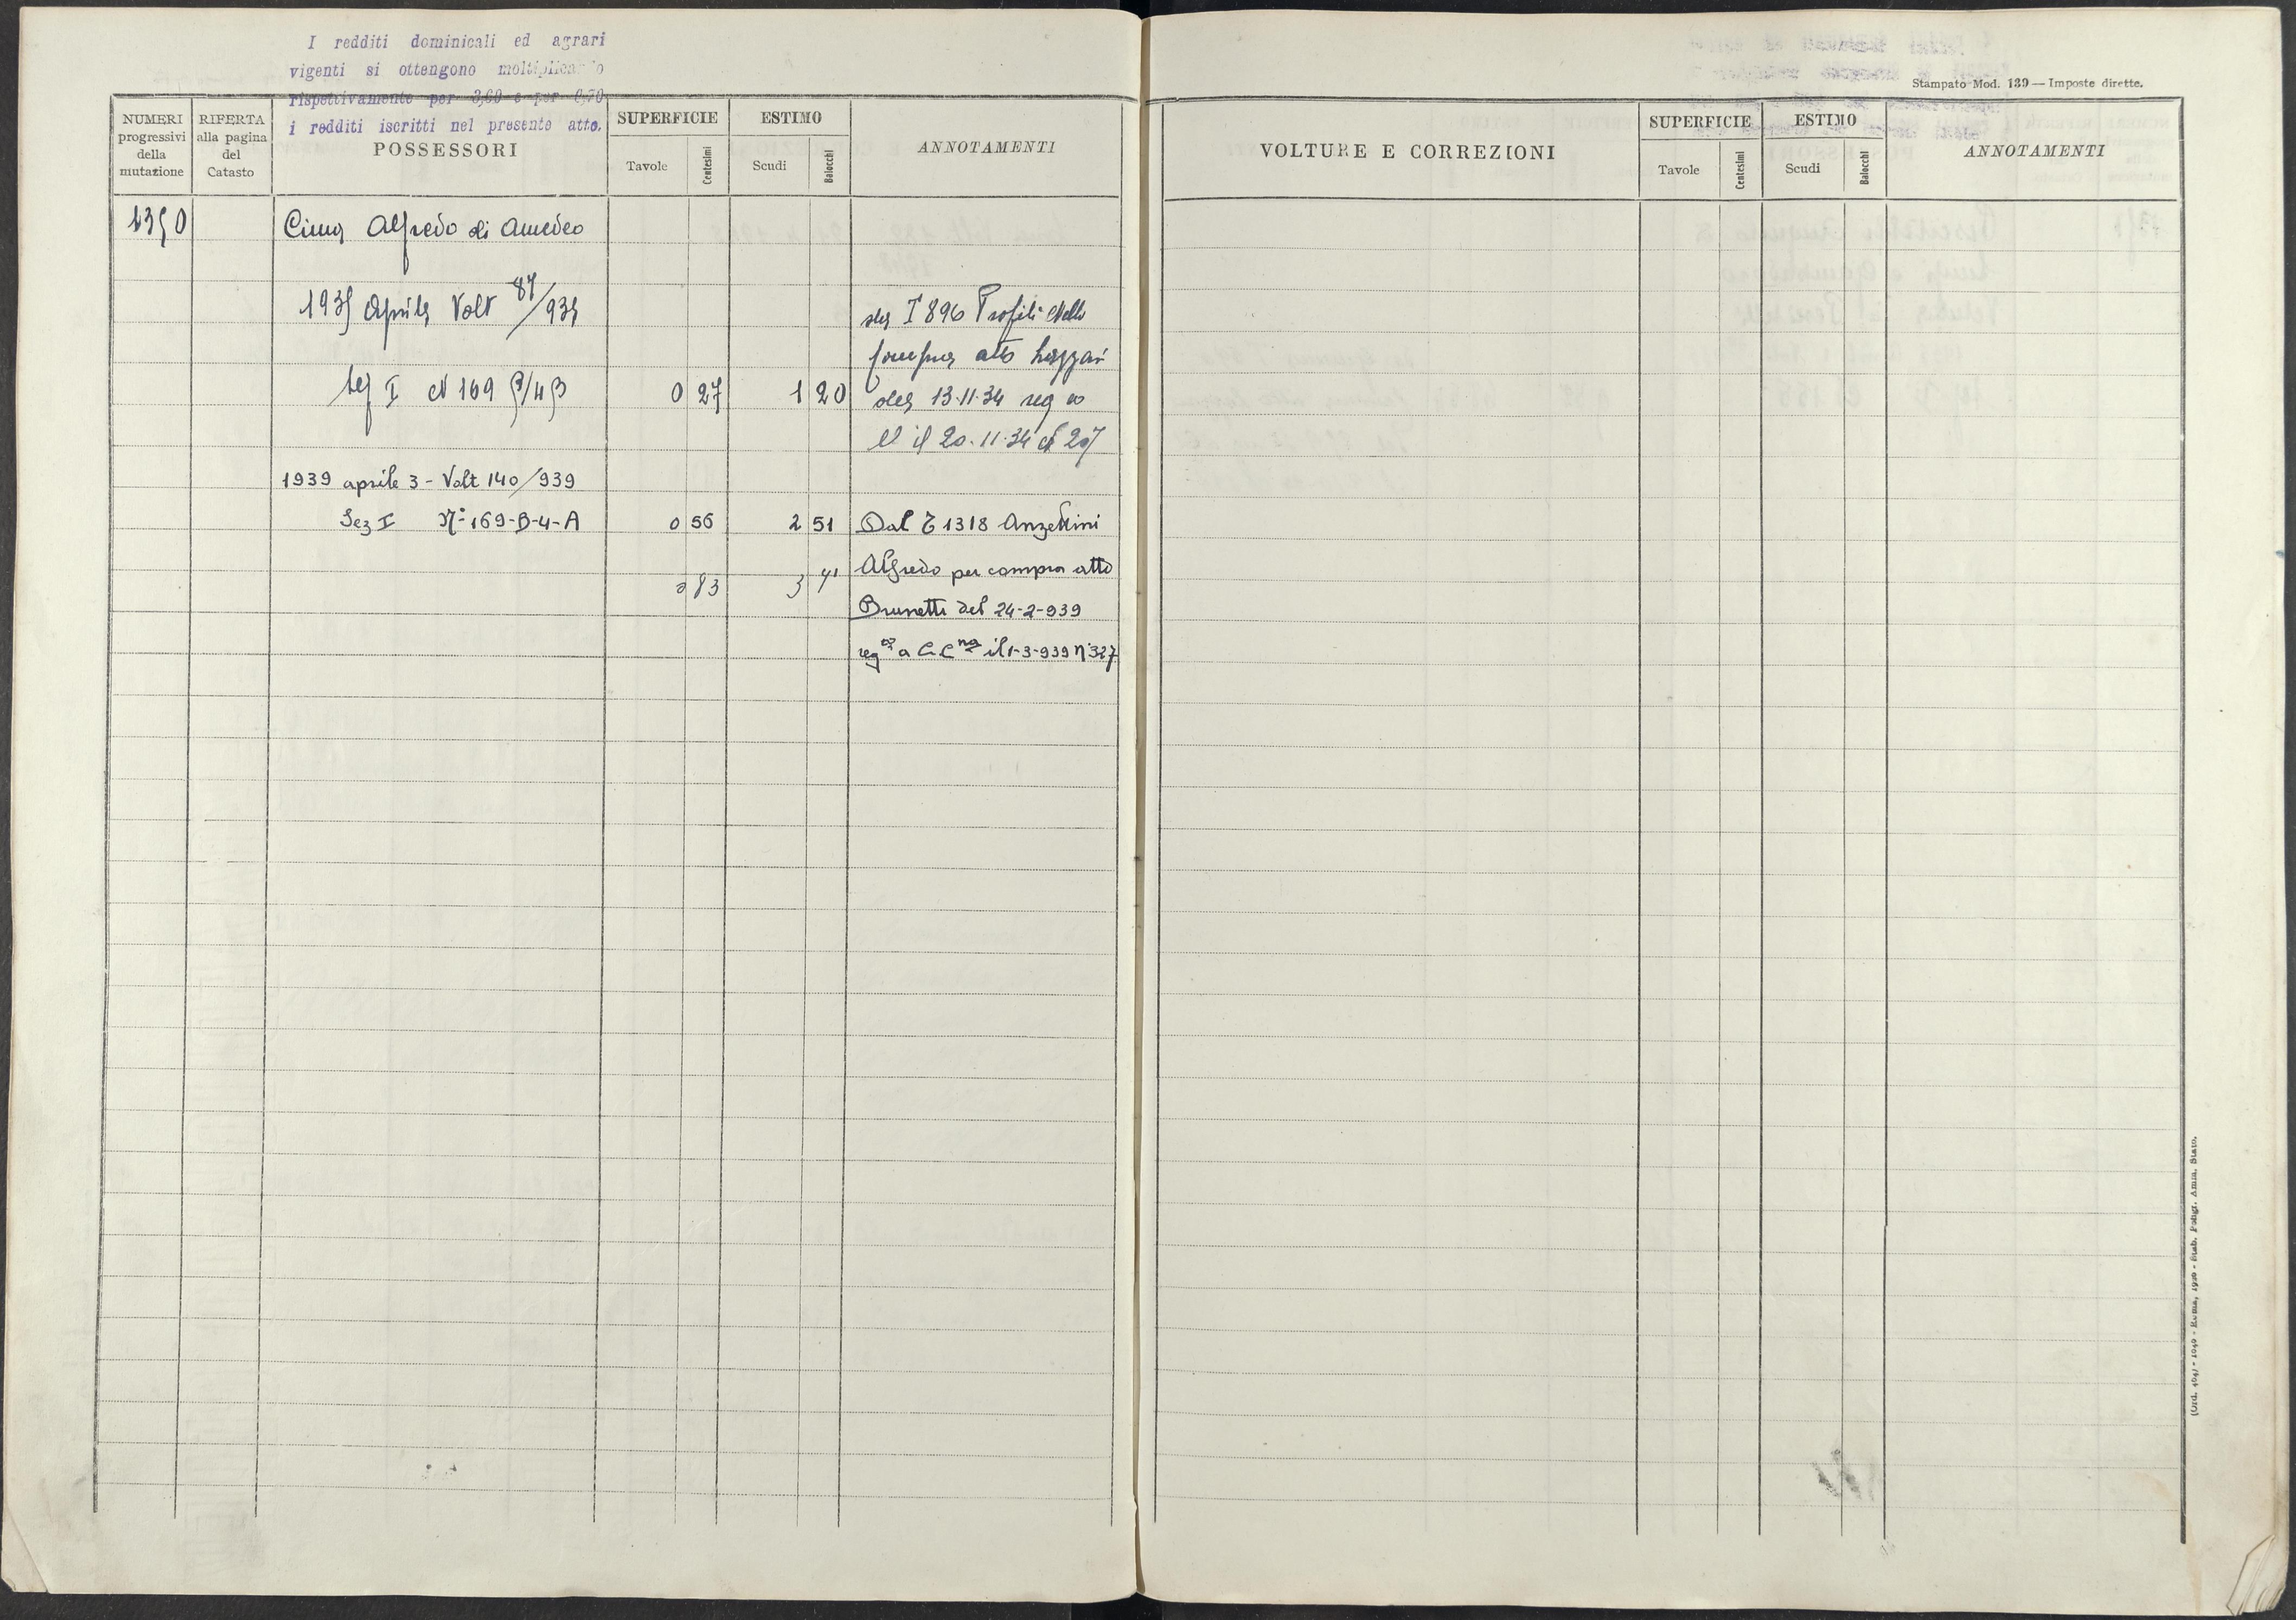 I redditi dominicali ed agrari
vigenti si ottengono moltiplicando
rispettivamente per 3,60 e per 6,70
i redditi iscritti nel presente atto.
NUMERI progressivi della mutazione
RIFERTA alla pagina del Catasto
POSSESSORI
SUPERFICIE
Tavole Centesimi
ESTIMO
Scudi Baiocchi
ANNOTAMENTI
1350 Cima Alfredo di Amedeo
1935 Aprile Volt 87/935
dal T 896 Profili Nello
compra atto
Sez I N 169 B/4 B 0 27 1 20 del 13.11.34 reg
il 20.11.34 N 207
1939 aprile 3 - Volt 140/939
Sez I N° 169-B-4-A 0 56 2 51 Dal T 1318 Anzellini
Alfredo per compra atto
0 83 3 71
Brunetti del 24-2-939
reg to a C. C na il 1-3-939 N° 327
Stampato Mod. 139 — Imposte dirette.
VOLTURE E CORREZIONI
SUPERFICIE
Tavole Centesimi
ESTIMO
Scudi Baiocchi
ANNOTAMENTI
Roma, - Stab. Poligr. Amm. Stato.